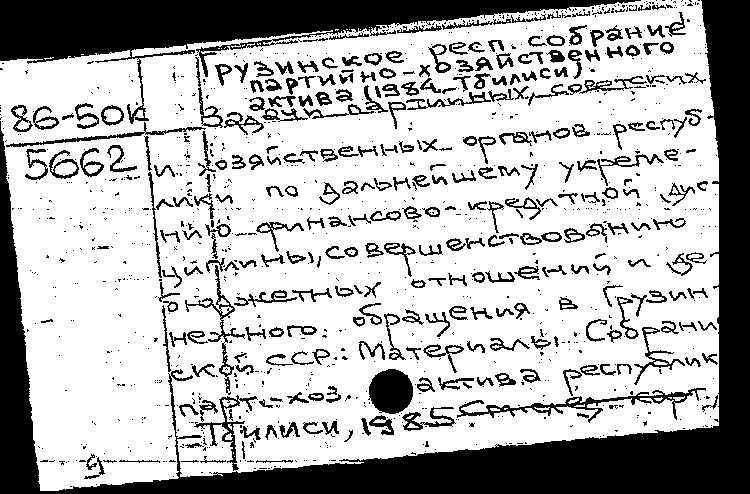 Грузинское респ. собрание
партийно-хозяйственного
актива (1984, Тбилиси).
86-50к Задачи партийных, советских
5662 и хозяйственных органов респуб-
лики по дальнейшему укрепле-
нию финансово-кредитной дис-
циплины, совершенствованию
бюджетных отношений и де-
нежного обращения в Грузин-
ской ССР.: Материалы Собрани
парт.-хоз. актива республик
=Тбилиси, 1985
9